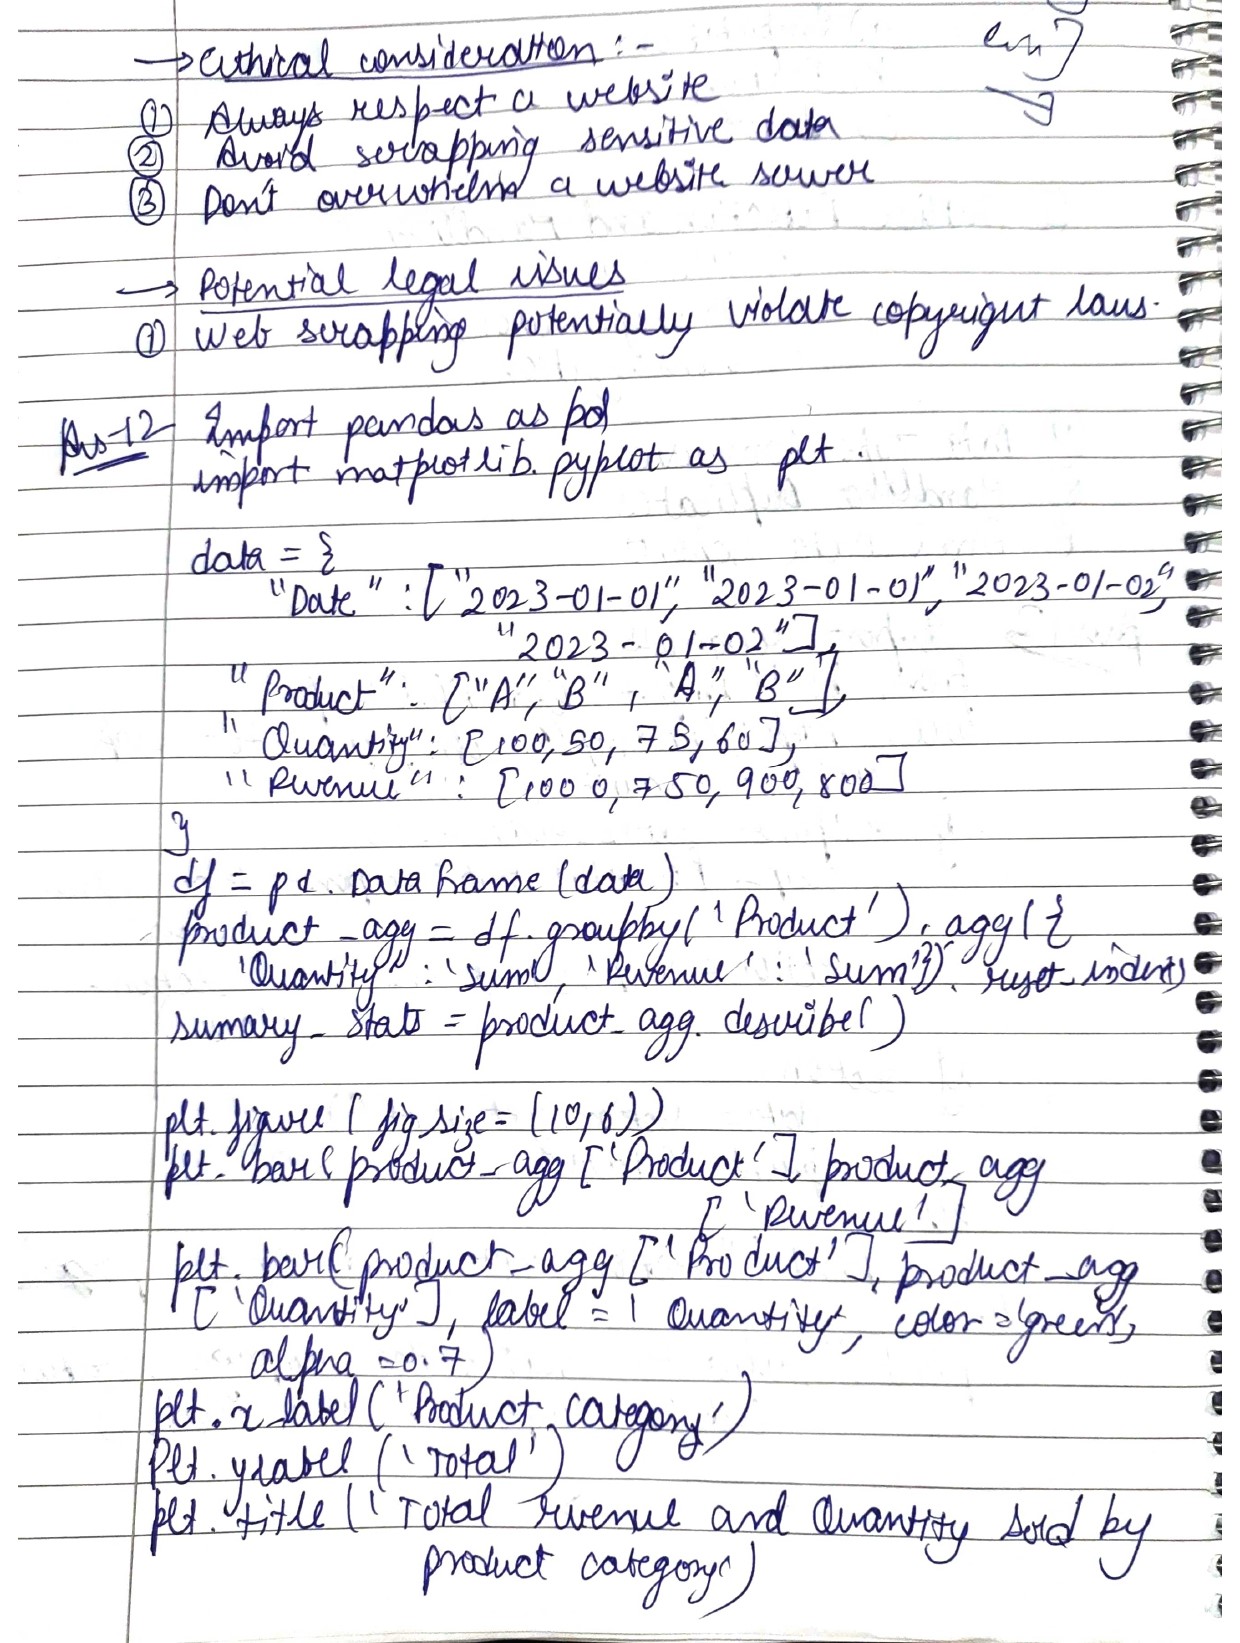 → Ethical consideration :-
① Always respect a website
② Avoid scrapping sensitive data
③ Don't overwhelm a website server
→ Potential legal issues
① Web scrapping potentially violate copyright laws.
Ans-12 Import pandas as pd
import matplotlib.pyplot as plt.
data = {
"Date" : ["2023-01-01", "2023-01-01", "2023-01-02",
"2023-01-02"],
"Product": ["A", "B", "A", "B"],
"Quantity": [100, 50, 75, 60],
"Revenue" : [1000, 750, 900, 800]
}
df = pd.DataFrame(data)
product_agg = df.groupby('Product').agg({
'Quantity' : 'sum', 'Revenue' : 'sum'}).reset_index()
sumary_stats = product_agg.describe()
plt.figure(figsize=(10,6))
plt.bar(product_agg['Product'], product_agg
['Revenue'.]
plt.bar(product_agg['Product'], product_agg
['Quantity'], label = 'Quantity', color='green',
alpha =0.7)
plt.x_label('Product category')
Plt.ylabel('Total')
plt.title('Total revenue and Quantity sold by
product category')